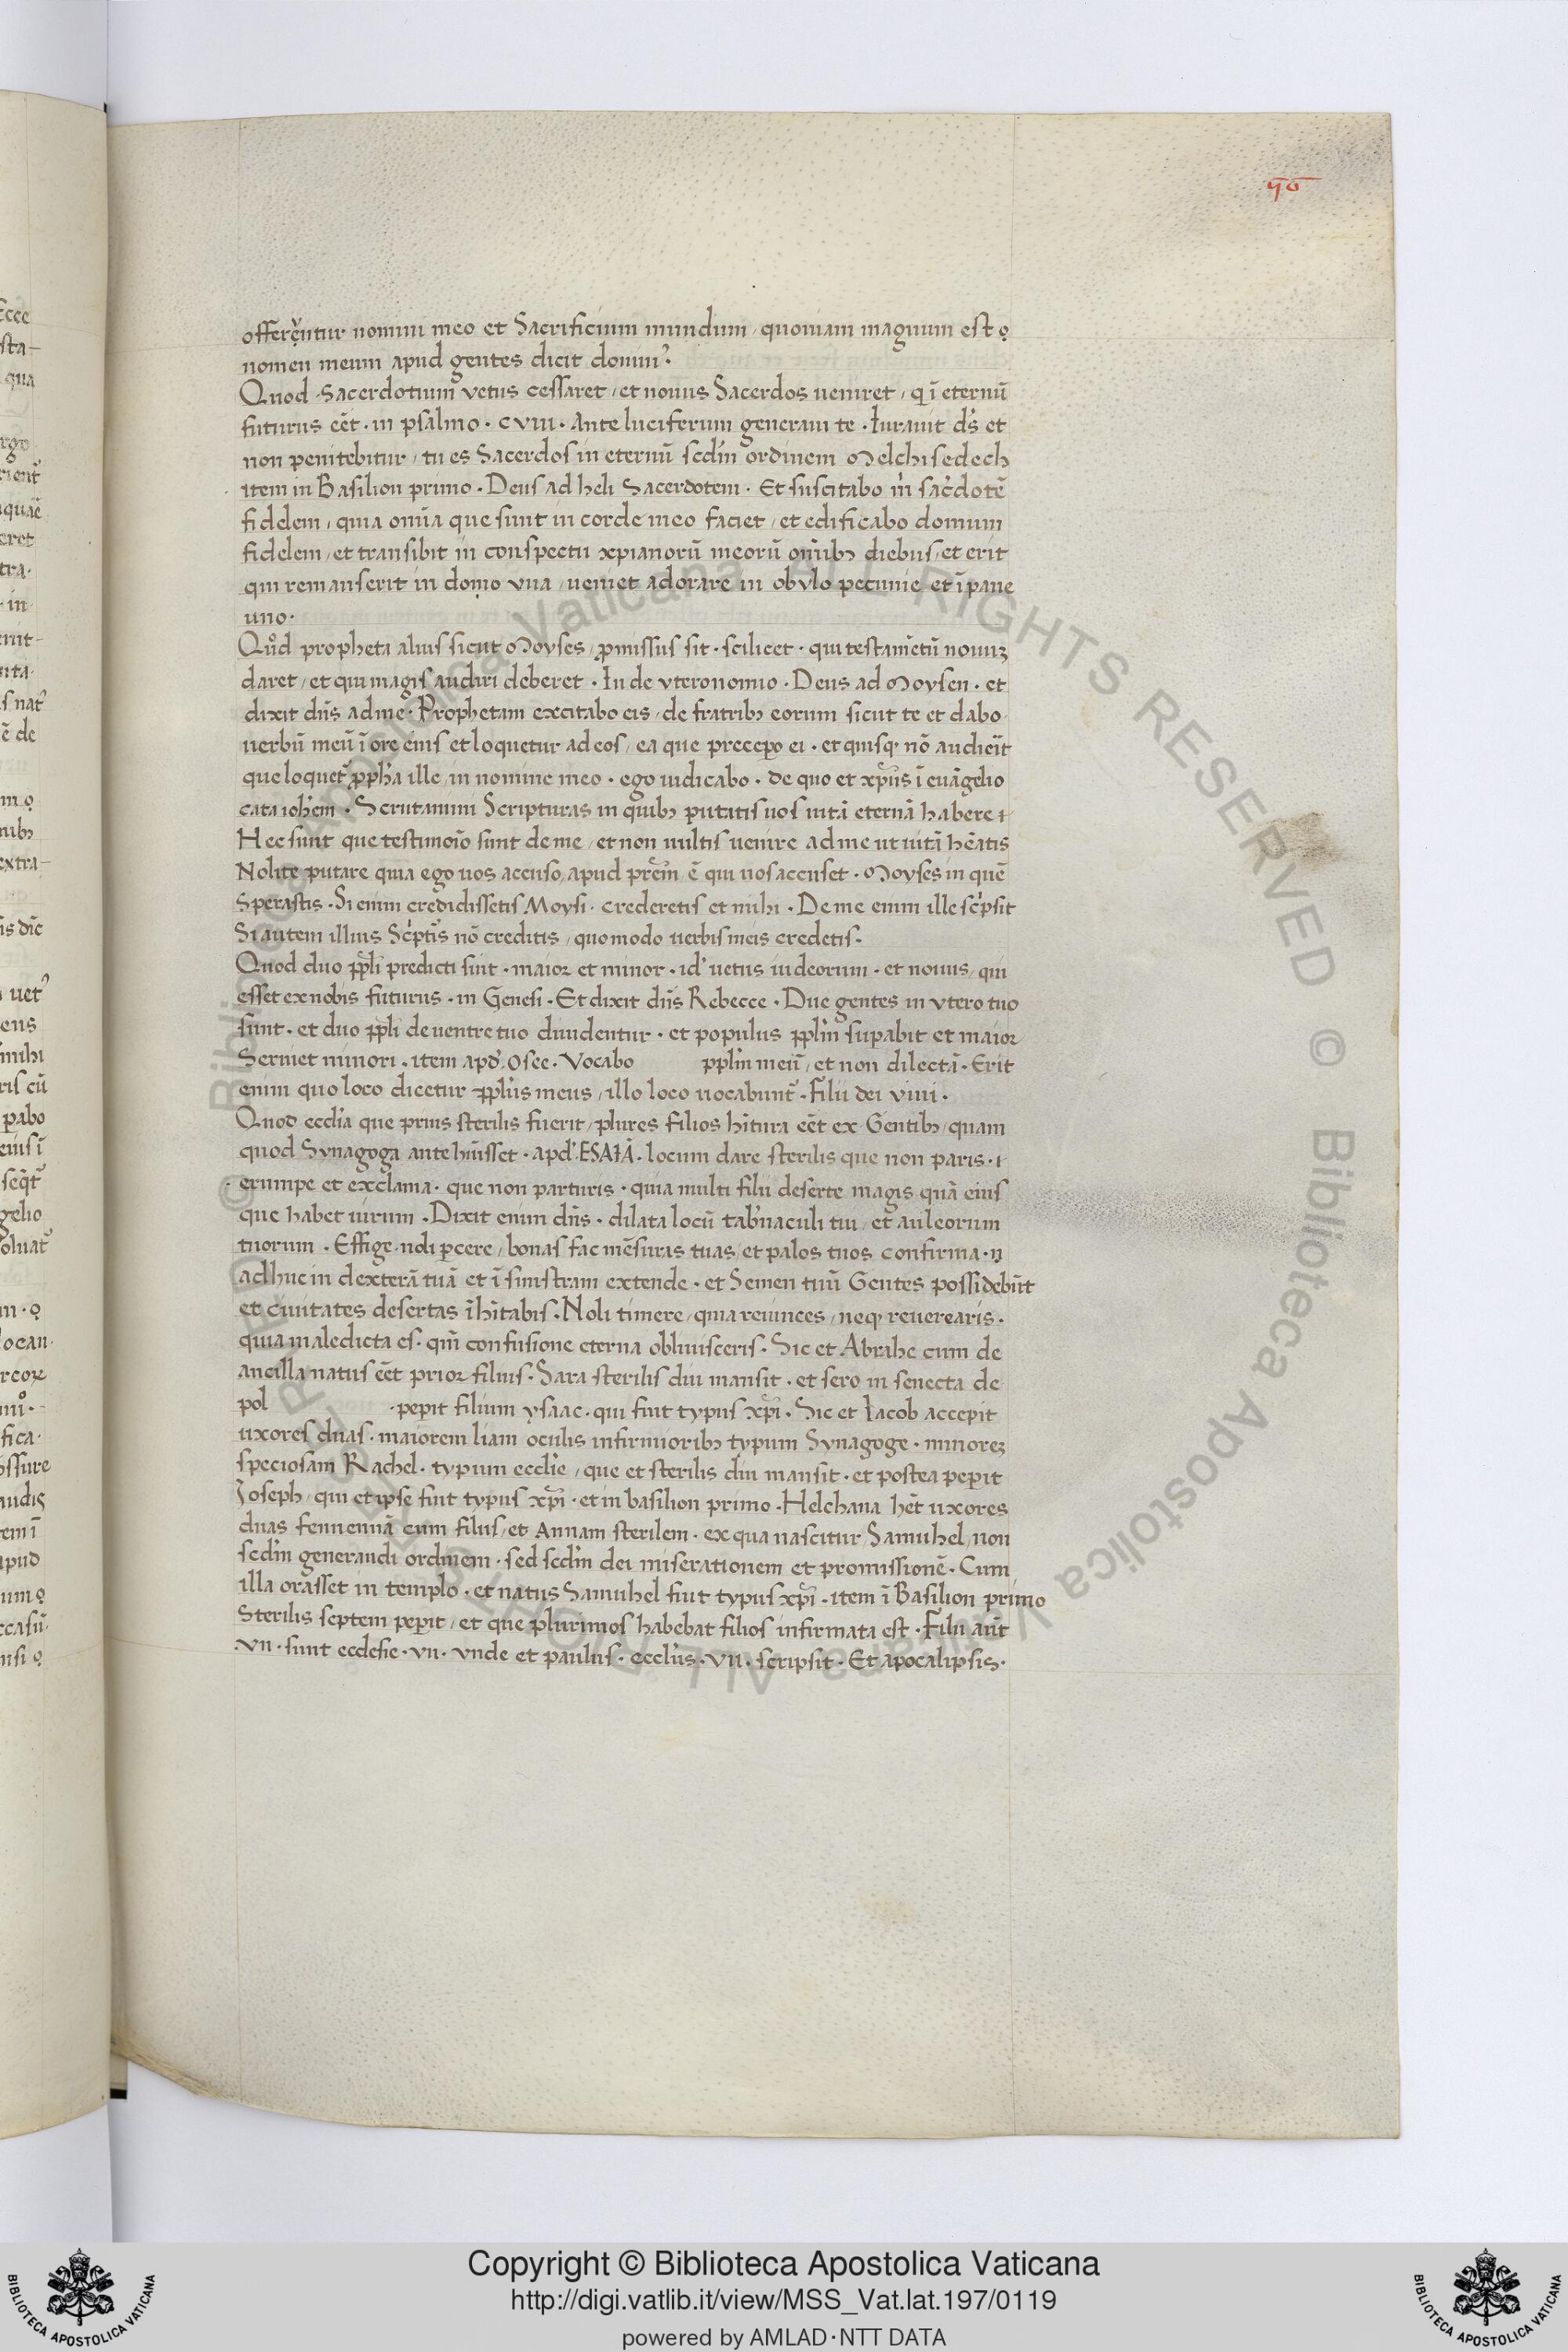 offerẹ̀ntur nomini meo et Sacrificium mundum / quoniam magnum est ọ
nomen meum apud gentes dicit domin᾽.
Quod Sacerdotium vetus cessaret / et nouus Sacerdos ueniret / q ĩ eternũ
futurus eẽt · in psalmo · cviii · Ante luciferum generaui te · Iurauit ds̃ et
non penitebitur / tu es Sacerdos in eternũ scdm̃ ordinem Melchisedech
item in Basilion primo · Deus ad heli Sacerdotem · Et suscitabo m̃ sac̃dotẽ
fiddem / quia omĩa que sunt in corde meo faciet / et edificabo domum
fidelem / et transibit in conspectu xpianorũ meorũ omĩbꝫ diebus / et erit
qui remanserit in domo vna / ueniet adorare in obvlo pecunie et ĩ pane
uno ·
Quod propheta alius sicut Moyses / ꝓmissus sit · scilicet · qui testam̃etũ nouuꝫ
daret / et qui magis audiri deberet · In de vteronomio · Deus ad Moysen · et
dixit dñs ad me · Prophetam excitabo eis / de fratribꝫ eorum sicut te et dabo
uerbũ meũ ĩ ore eius et loquetur ad eos / ea que precepo ei · et quisq nõ audieĩt
que loquet̃ ꝓpha ille / in nomine meo · ego uidicabo · de quo et xp̃us ĩ euãgelio
cata ioh̃em · Scrutamini Scripturas in quibꝫ putatis uos uitã eternã habere ·
Hee sunt que testimoĩo sunt de me / et non uultis uenire ad me ut uitã hẽatis
Nolite putare quia ego uos accuso / apud pr̃em / ẽ qui uos accuset · Moyses in quẽ
Sperastis · Si enim credidissetis Moysi · crederetis et mihi · De me enim ille sc̃psit
Si autem illius Sc̃ptis nõ creditis / quomodo uerbis meis credetis ·
Quod duo ppl̃i predicti sint · maior et minor · id᾽ uetus iudeorum · et nouus / qui
esset ex nobis futurus · in Genesi · Et dixit dñs Rebecce · Due gentes in vtero tuo
sunt · et duo ppl̃i de uentre tuo diuidentur · et populus ppl̃m supabit et maior
Seruiet minori · item apd᾽ · Osee · Vocabo ppl̃m meũ / et non dilectã · Erit
enim quo loco dicetur ppl̃us meus / illo loco uocabunt̃ · Filii dei viui ·
Quod eccl̃ia que prius sterilis fuerit / plures filios hĩtura eẽt ex Gentibꝫ / quam
quod Synagoga ante hũisset · apd᾽ · ESAIÃ · locum dare sterilis que non paris ·
erumpe et exclama · que non parturis · quia multi filii deserte magis quã eius
que habet uirum · Dixit enim dñs · dilata locũ tab̃naculi tui / et auleorum
tuorum · Effige · ndi pcere / bonas fac mẽsuras tuas / et palos tuos confirma · ꝗ
adhuc in dexterã tuã et ĩ sinistram extende · et Semen tuũ Gentes possidebũt
et ciuitates desertas ĩhĩtabis · Noli timere / quia reuinces / neq reuerearis ·
quia maledicta es · qm̃ confusione eterna obliuisceris · Sic et Abrahe cum de
ancilla natus eẽt prior filius · Sara sterilis diu mansit · et sero in senecta de
pol · pepit filium ysaac · qui fuit typus xp̃i · Sic et Iacob accepit
uxores duas · maiorem liam oculis infirmioribꝫ typum Synagoge · minoreꝫ
speciosam Rachel · typum eccl̃ie / que et sterilis diu mansit · et postea pepit
Ioseph / qui et ipse fuit typus xp̃i · et in basilion primo · Helchana hẽt uxores
duas fennennã cum filiis / et Annam sterilem · ex qua nascitur Samuhel / non
scdm̃ generandi ordinem · sed scdm̃ dei miserationem et promissionẽ · Cum
illa orasset in templo · et natus Samuhel fuit typus xp̃i · item ĩ Basilion primo
Sterilis septem pepit / et que plurimos habebat filios infirmata est · Filii aũt
·vii· sunt ecclesie · vii · vnde et paulus · eccl̃iis · vii · scripsit · Et apocalipsis ·
Copyright © Biblioteca Apostolica Vaticana
http://digi.vatlib.it/view/MSS_Vat.lat.197/0119
powered by AMLAD·NTT DATA